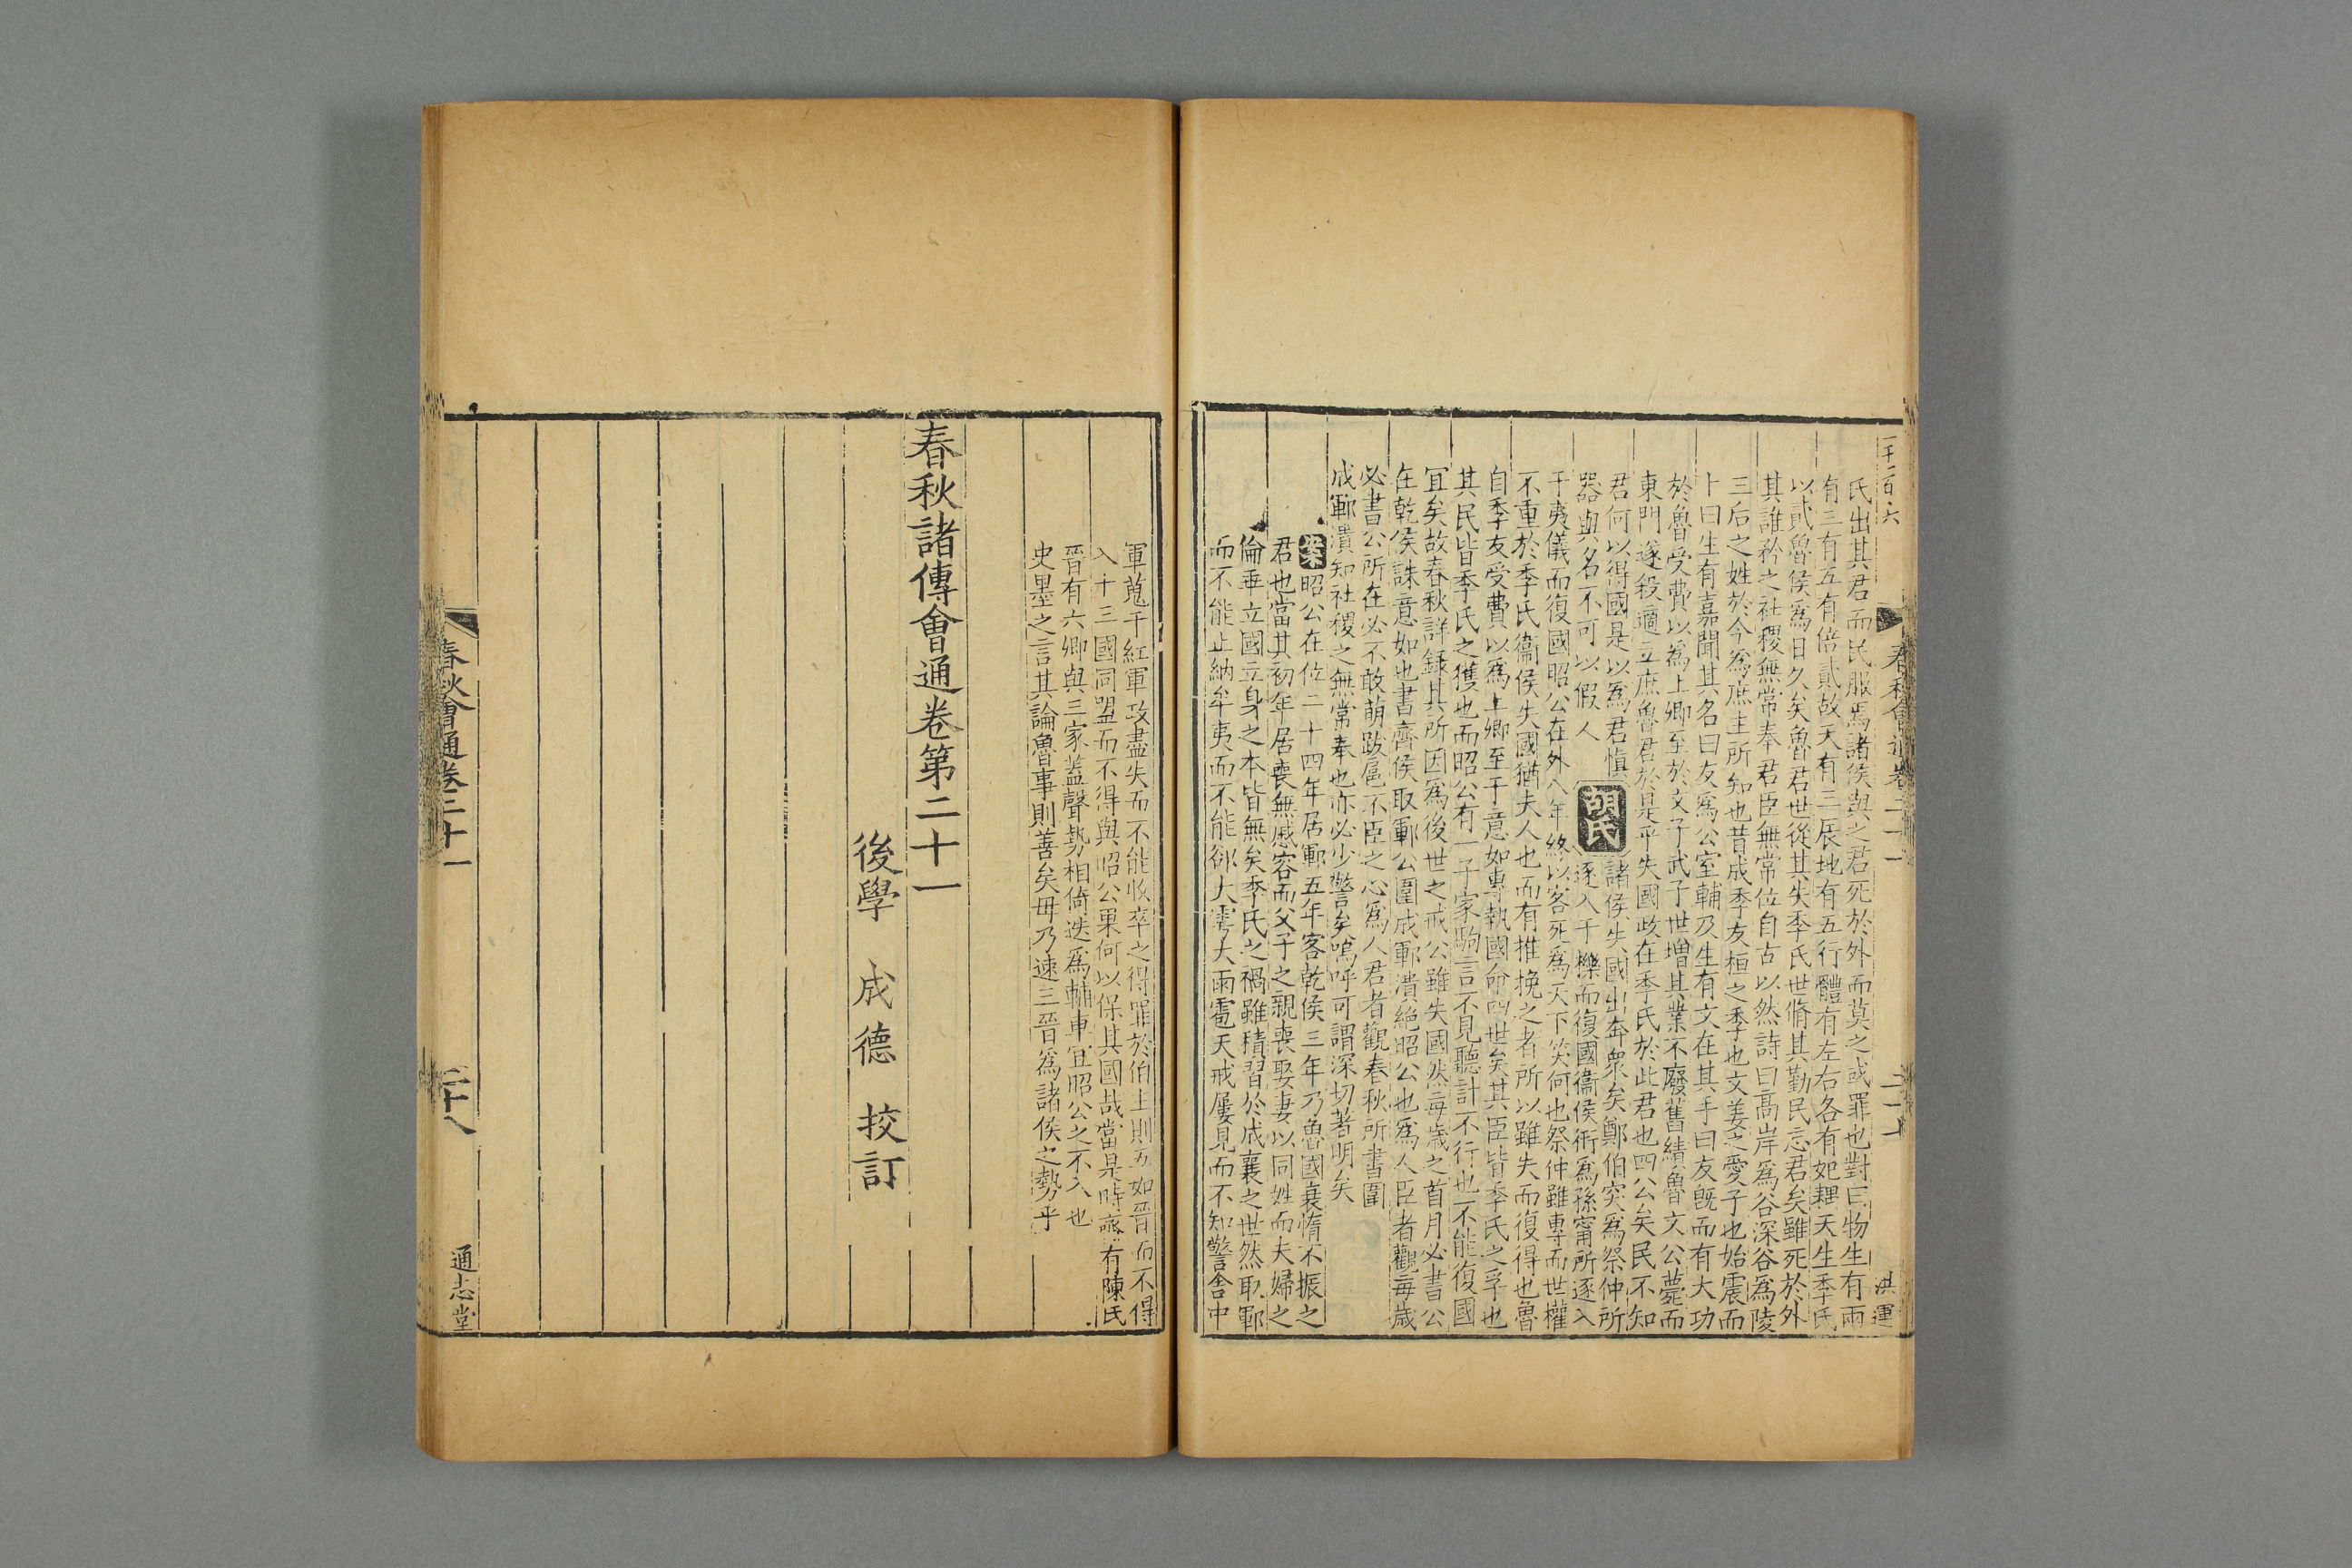 千二百六
春秋會通卷二十一
洪運
氏出其君而民服焉諸侯與之君死於外而莫之或罪也對曰物生有兩
有三有五有倍貳故天有三辰地有五行體有左右各有妃耦天生季氏
以貳魯侯爲日久矣魯君世從其失季氏世脩其勤民忘君矣雖死於外
其誰矜之社稷無常奉君臣無常位自古以然詩曰高岸爲谷深谷爲陵
三后之姓於今爲庶主所知也昔成季友桓之季也文姜之愛子也始震而
卜曰生有嘉聞其名曰友爲公室輔及生有文在其手曰友旣而有大功
於魯受費以爲上卿至於文子武子世增其業不廢舊績魯文公薨而
東門遂殺適立庶魯君於是乎失國政在季氏於此君也四公矣民不知
君何以得國是以爲君慎
器與名不可以假人
胡氏
諸侯失國出奔衆矣鄭伯突爲祭仲所
逐入于櫟而復國衞侯衎爲孫甯所逐入
于夷儀而復國昭公在外八年終以客死爲天下笑何也祭仲雖專而世權
不重於季氏衞侯失國猶夫人也而有推挽之者所以雖失而復得也魯
自季友受費以爲上卿至于意如專執國命四世矣其臣皆季氏之孚也
其民皆季氏之獲也而昭公有一子家駒言不見聽計不行也不能復國
宜矣故春秋詳録其所因爲後世之戒公雖失國然每歲之首月必書公
在乾侯誅意如也書齊侯取鄆公圍成鄆潰絶昭公也爲人臣者觀每歲
必書公所在必不敢萌跋扈不臣之心爲人君者觀春秋所書圍
成鄆潰知社稷之無常奉也亦必少警矣嗚呼可謂深切著明矣
案昭公在位二十四年居鄆五年客乾侯三年乃魯國衰惰不振之
君也當其初年居喪無慼容而父子之親喪娶妻以同姓而夫婦之
倫乖立國立身之本皆無矣季氏之禍雖積習於成襄之世然取鄆
而不能止納牟夷而不能郤大雩大雨雹天戒屢見而不知警舍中
軍蒐于紅軍政盡失而不能收卒之得罪於伯主則五如晉而不得
入十三國同盟而不得與昭公果何以保其國哉當是時齊有陳氏
晉有六卿與三家蓋聲勢相倚迭爲輔車宜昭公之不入也
史墨之言其論魯事則善矣毋乃速三晉爲諸侯之勢乎
春秋諸傳會通卷第二十一
後學 成德 挍訂
春秋會通卷二十一
二十八
通志堂